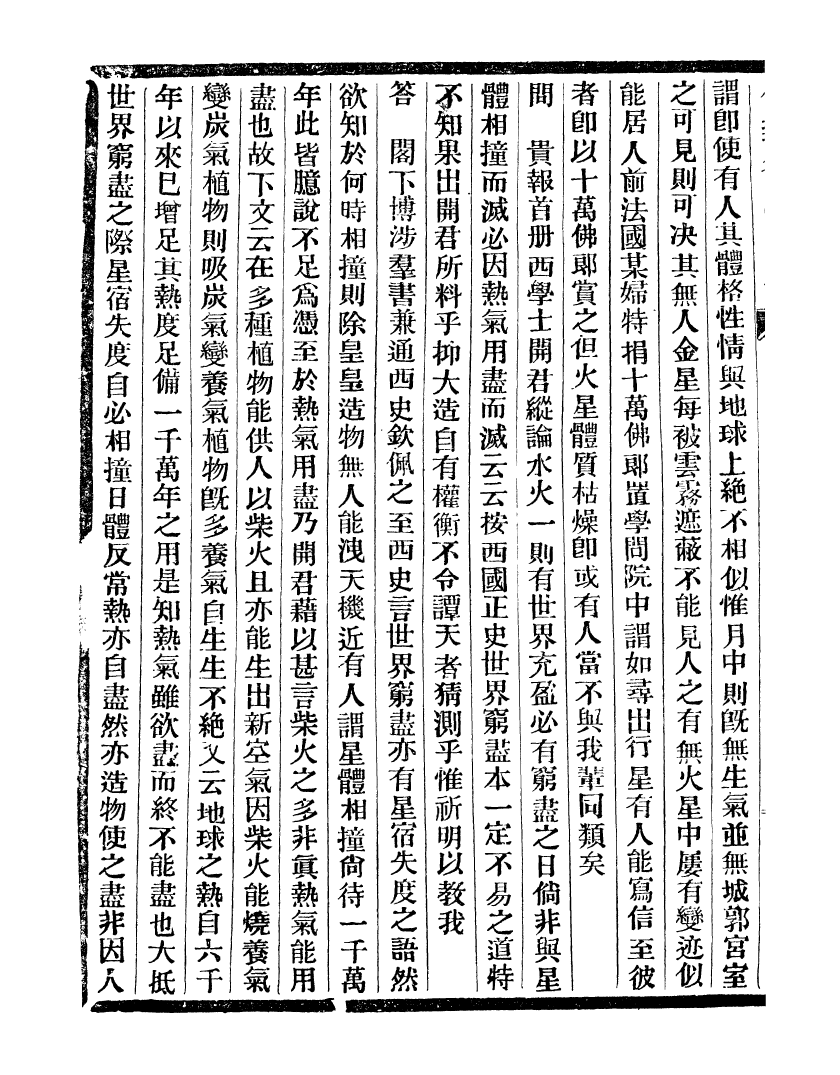 謂卽使有人其體格性情與地球上絶不相似惟月中則旣無生氣並無城郭宮室
之可見則可決其無人金星每被雲霧遮蔽不能見人之有無火星中屢有變迹似
能居人前法國某婦特捐十萬佛郞置學問院中謂如尋出行星有人能寫信至彼
者卽以十萬佛郞賞之但火星體質枯燥卽或有人當不與我輩同類矣
問　貴報首册西學士開君縱論水火一則有世界充盈必有窮盡之日倘非與星
體相撞而滅必因熱氣用盡而滅云云按西國正史世界窮盡本一定不易之道特
不知果出開君所料乎抑大造自有權衡不令譚天者猜測乎惟祈明以教我
答　閣下博涉羣書兼通西史欽佩之至西史言世界窮盡亦有星宿失度之語然
欲知於何時相撞則除皇皇造物無人能洩天機近有人謂星體相撞尙待一千萬
年此皆臆說不足爲憑至於熱氣用盡乃開君藉以甚言柴火之多非眞熱氣能用
盡也故下文云在多種植物能供人以柴火且亦能生出新空氣因柴火能燒養氣
變炭氣植物則吸炭氣變養氣植物旣多養氣自生生不絶又云地球之熱自六千
年以來已增足其熱度足備一千萬年之用是知熱氣雖欲盡而終不能盡也大抵
世界窮盡之際星宿失度自必相撞日體反常熱亦自盡然亦造物使之盡非因人